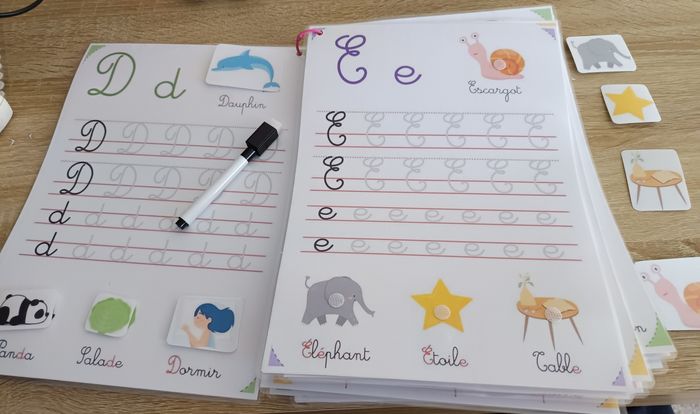 D d
Dauphin
D D D D
D D D D D
d d d d d d
d d d d d d
Panda
Salade
Dormir
E e
Escargot
E E E E E E
E E E E E E
e e e e e e
e e e e e e
Éléphant
Étoile
Table